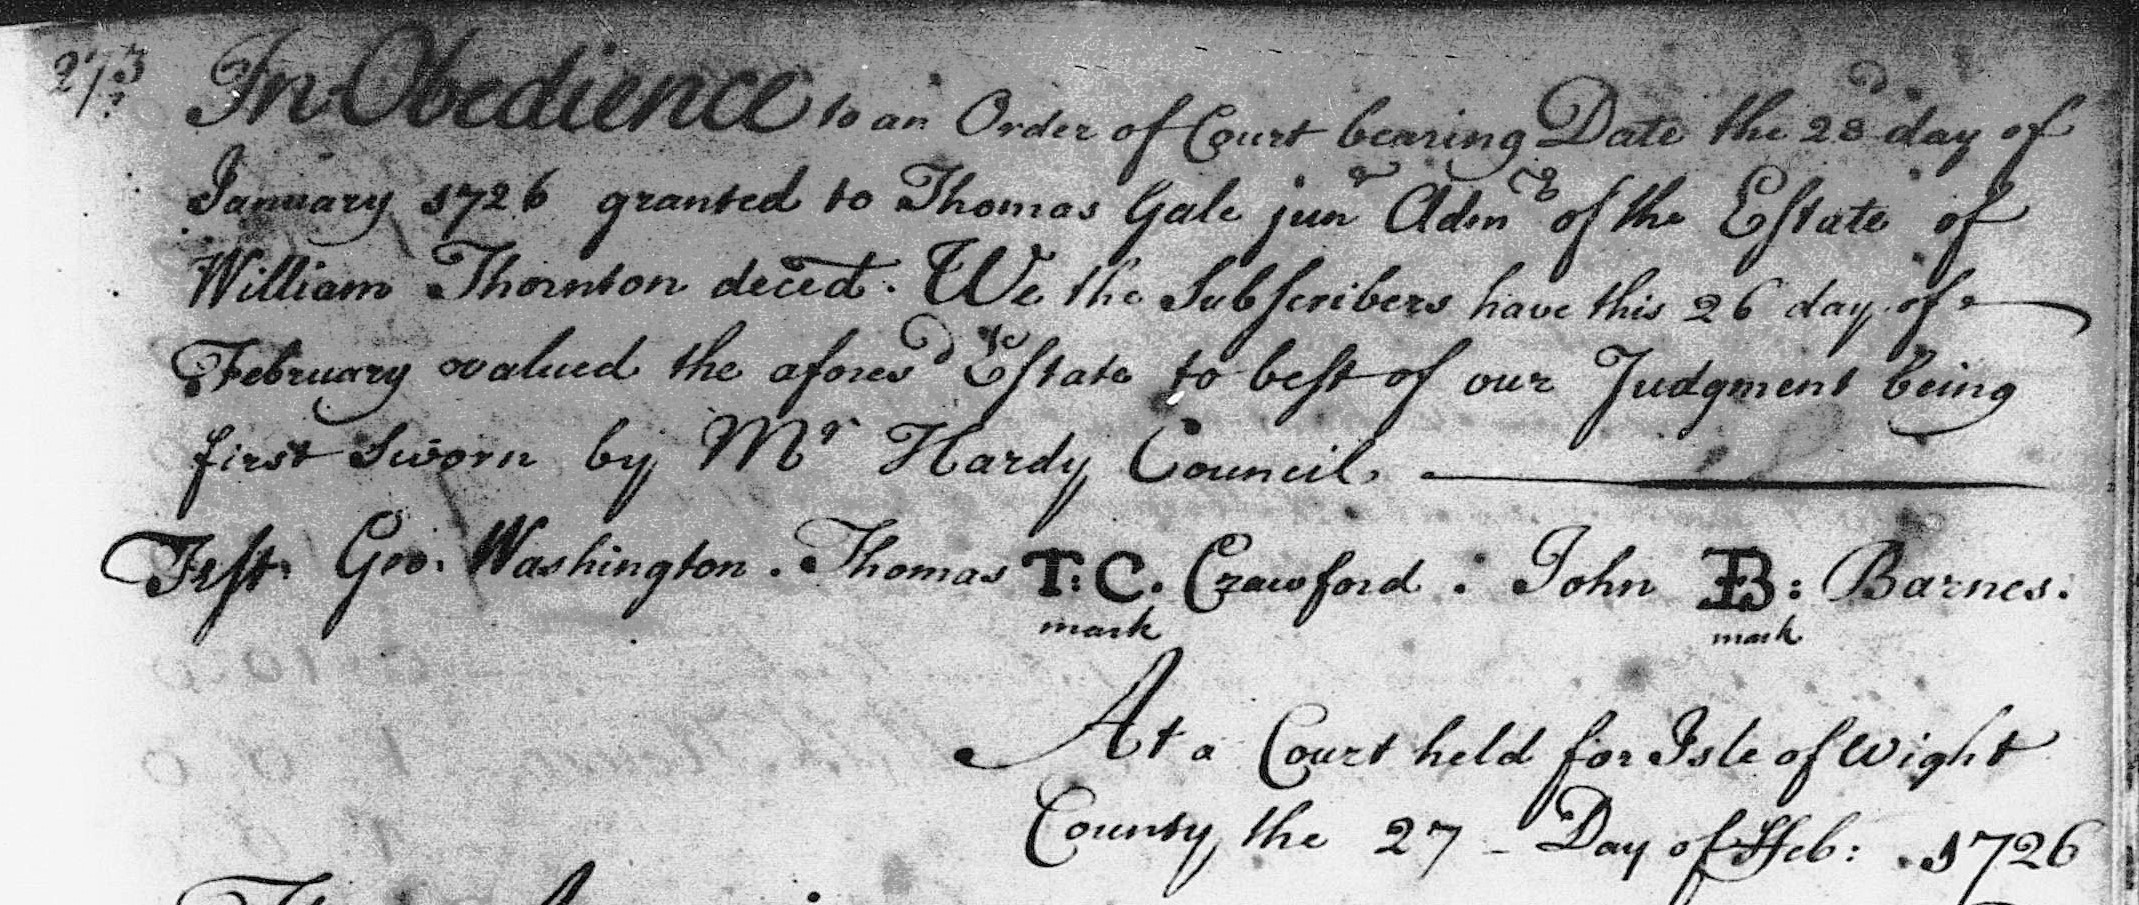 273 In Obedience to an Order of Court bearing Date the 23d day of
January 1726 granted to Thomas Gale junr Admr of the Estate of
William Thornton deced. We the Subscribers have this 26 day of
February valued the afores'd Estate to ye best of our Judgment being
first Sworn by Mr Hardy Council.
Test. Geo. Washington. Thomas T:C. Crawford. John B: Barnes.
mark mark
At a Court held for Isle of Wight
County the 27 - Day of Feb: 1726